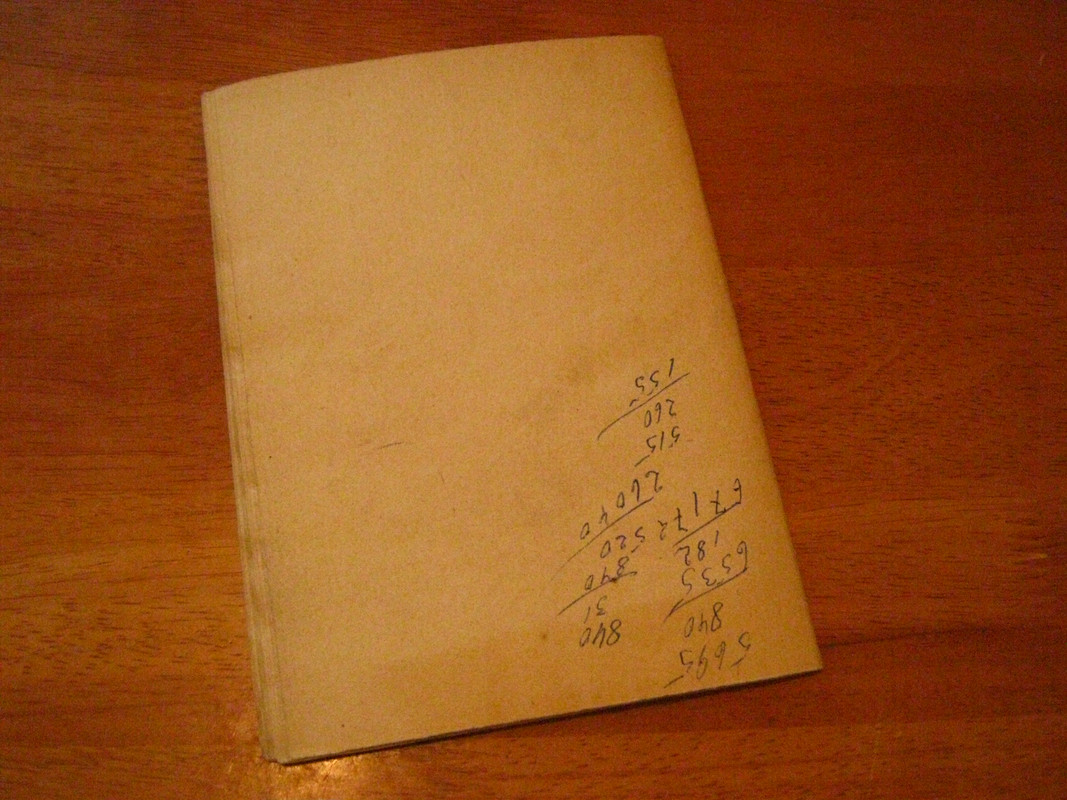 5695
840
6535
182
6717
840
31
840
2520
26040
515
260
155